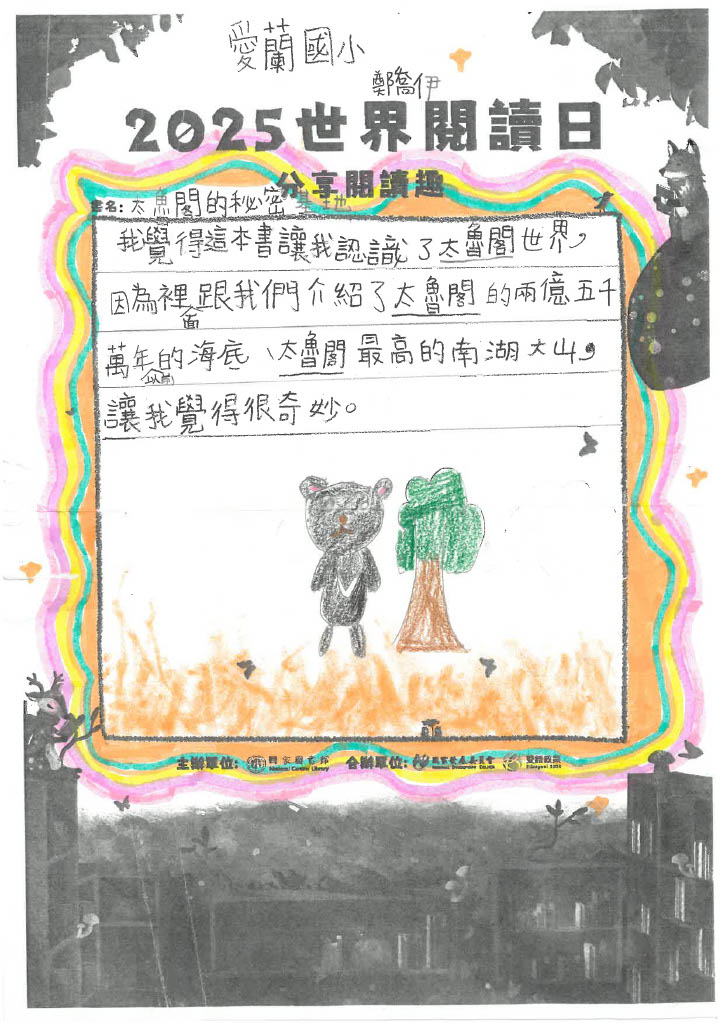 愛蘭國小
鄭喬伊
2025世界閱讀日
分享閱讀趣
書名：太魯閣的秘密基地
我覺得這本書讓我認識了太魯閣世界，
因為裡面跟我們介紹了太魯閣的兩億五千
萬年以前的海底、太魯閣最高的南湖大山，
讓我覺得很奇妙。
主辦單位： 國家圖書館 National Central Library 合辦單位： 國家發展委員會 National Development Council